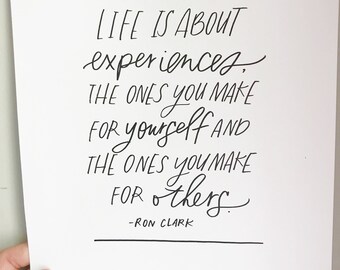 LIFE IS ABOUT
experiences.
THE ONES YOU MAKE
FOR yourself AND
THE ONES YOU MAKE
FOR others.
-RON CLARK